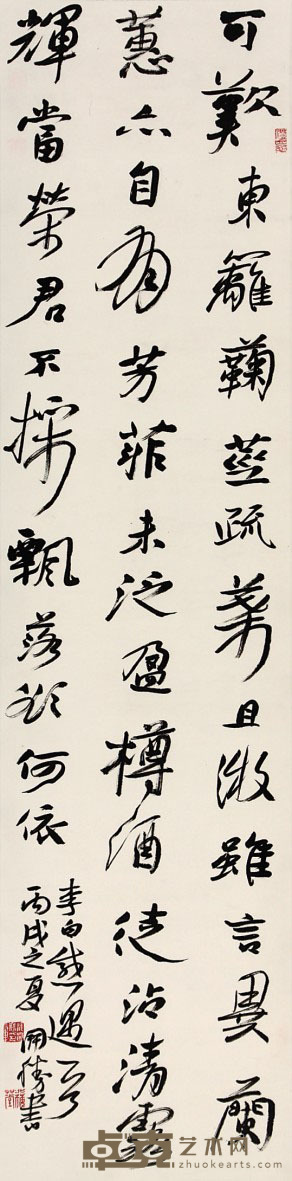 可歎東籬鞠莖疏葉且微雖言異蘭
蕙亦自有芳菲未泛盈樽酒徒沾清露
輝當榮君不採飄落欲何依
李白感遇
丙戌之夏 開書
卓克艺术网
zhuokearts.com